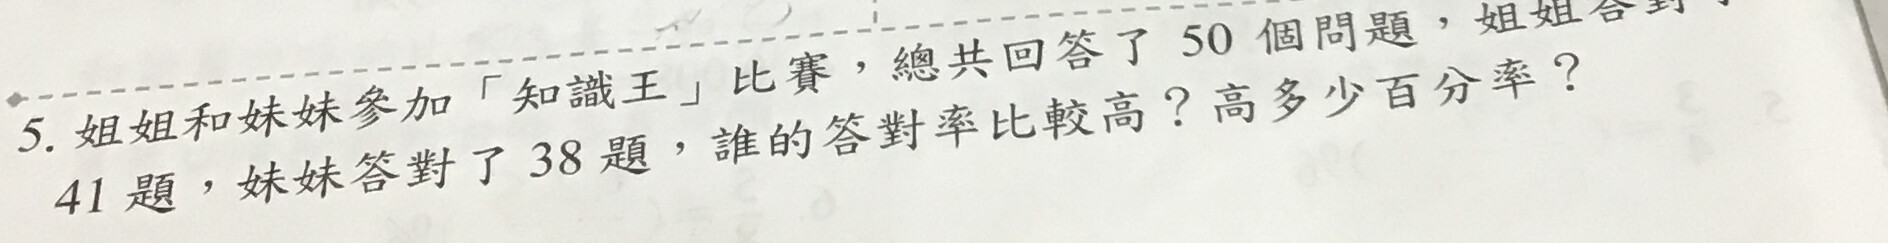 5. 姐姐和妹妹參加「知識王」比賽，總共回答了 50 個問題，姐姐答對
41 題，妹妹答對了 38 題，誰的答對率比較高？高多少百分率？